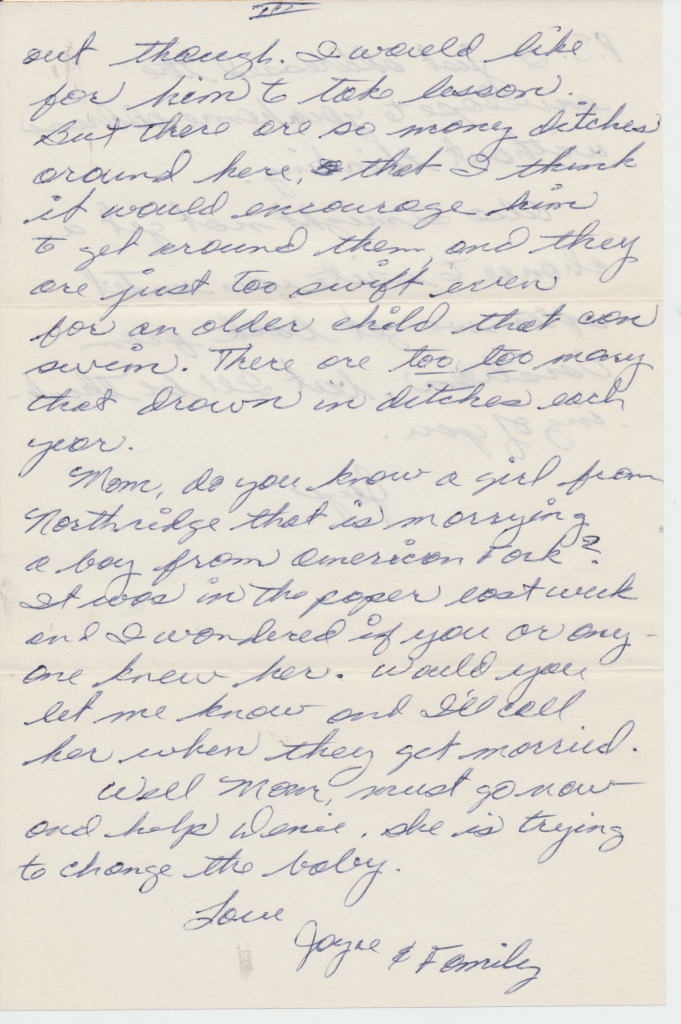 III
out though. I would like
for him to take lesson.
But there are so many ditches
around here, that I think
it would encourage him
to get around them, and they
are just too swift even
for an older child that can
swim. There are too too many
that drown in ditches each
year.
Mom, do you know a girl from
Northridge that is marrying
a boy from American Fork?
It was in the paper last week
and I wondered if you or any-
one knew her. Would you
let me know and I'll call
her when they get married.
Well Mom, must go now
and help Denie. She is trying
to change the baby.
Love
Jayne & Family